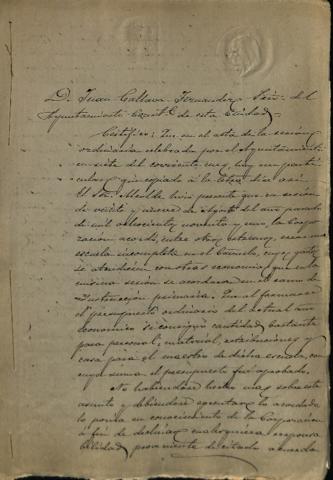 D. Juan Fernandez Srio. del
Ayuntamiento Constl. de esta Ciudad
Certifico: Que en el acta de la sesion
ordinaria celebrada por el Ayuntamiento
en siete del corriente mes, hay un parti-
cular, que copiado á la letra dice asi
El Sr. Alcalde hizo presente que en sesion
de veinte y nueve de Agosto del año pasado
de mil ochocientos noventa y uno, la Corpo-
ración acordó, entre otros estremos, crear una
escuela incompleta en el cuyos gastos
se atendiesen con otras economias que en la
misma sesión se acordaron en el ramo de
instrucción primaria. Que al formarse
el presupuesto ordinario del actual año
economico se consignó cantidad bastante
para personal, material, y
casa para el maestro de dicha escuela, con
cuya suma el presupuesto fue aprobado.
No habiendose hecho mas sobre este
asunto y debiendose ejecutar lo acordado
lo ponia en conocimiento de la Corporacion
á fin de declinar cualesquiera responsa-
bilidad proveniente de citado acuerdo